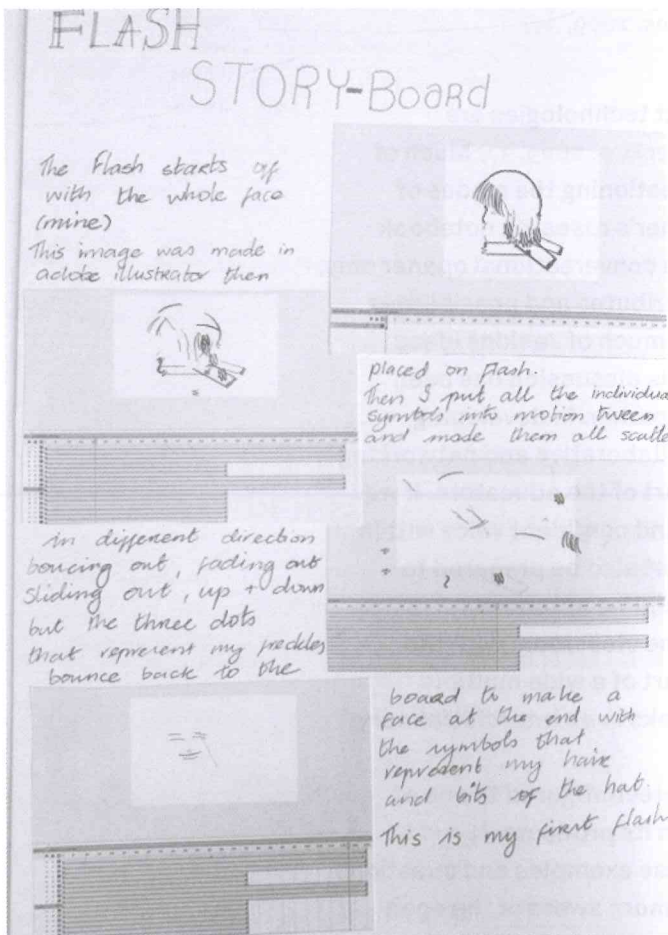 FLASH
STORY-Board
The Flash starts off
with the whole face
(mine)
This image was made in
adobe illustrator then
placed on Flash.
Then I put all the individual
symbols into motion tween
and made them all scatte
in different direction
boucing out, fading out
sliding out, up + down
but the three dots
that reprerent my freckles
bounce back to the
board to make a
face at the end with
the symbols that
reprerent my hair
and bits of the hat.
This is my first flash